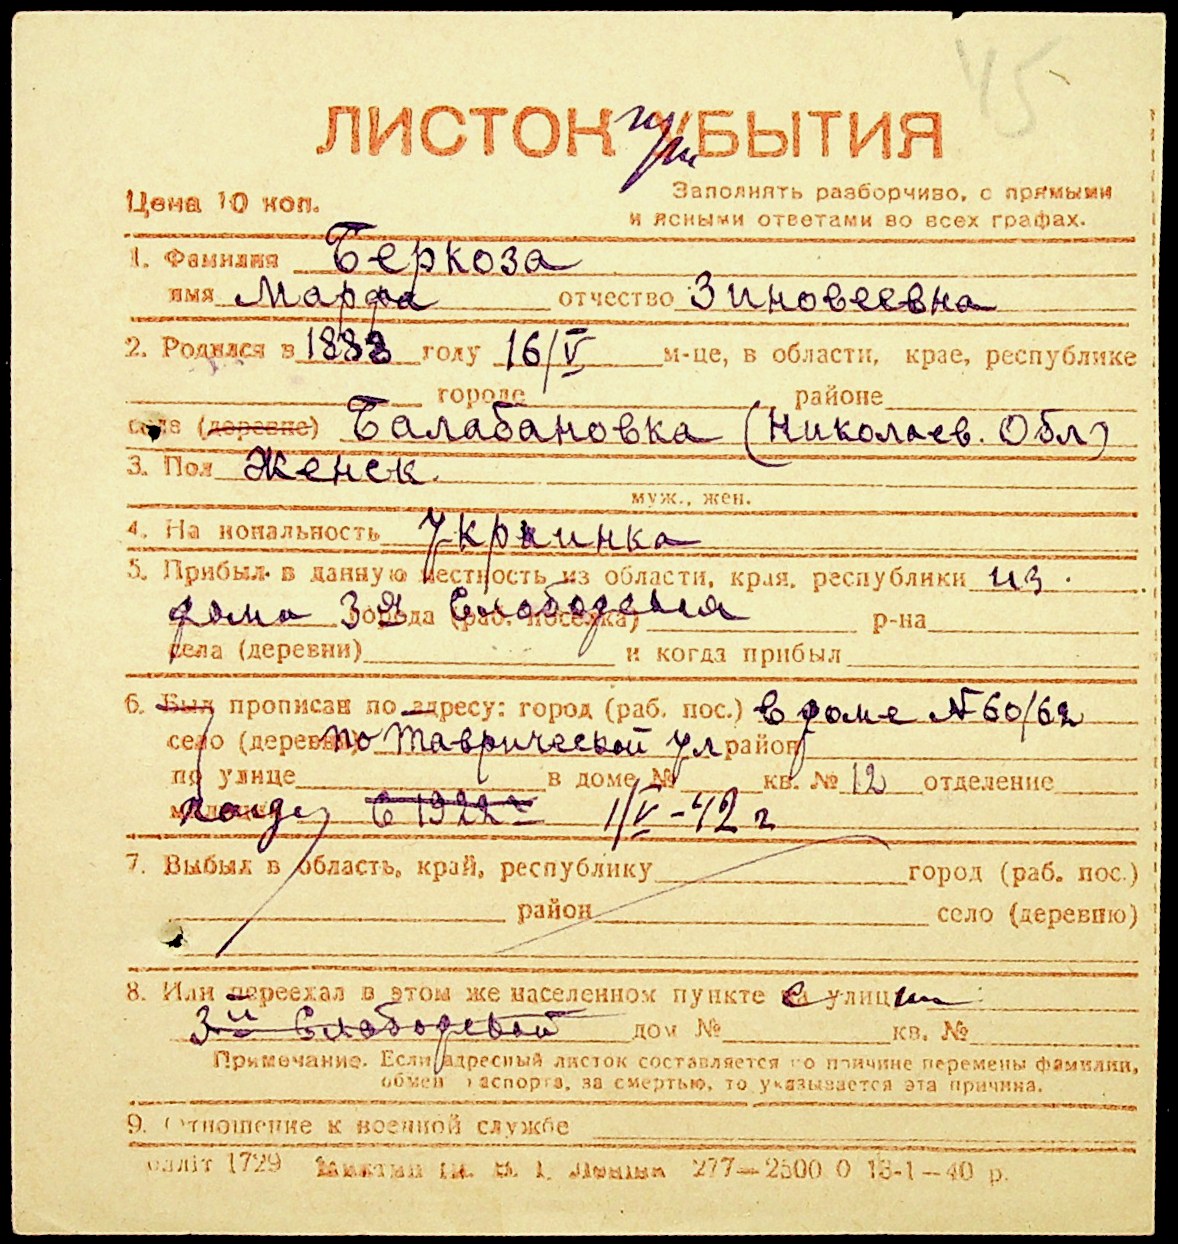 45
ЛИСТОК при УБЫТИЯ
Цена 10 коп.
Заполнять разборчиво, с прямыми
и ясными ответами во всех графах.
1. Фамилия Беркоза
имя Марфа отчество Зиновеевна
2. Родился в 1888 году 16/V м-це, в области, крае, республике
городе районе
селе (деревне) Балабановка (Николаев. Обл)
3. Пол Женск.
муж., жен.
4. На иональность Украинка
5. Прибыл в данную местность из области, края, республики из
дома 3я Слободская города (раб. поселка) р-на
села (деревни) и когда прибыл
6. Был прописан по адресу: город (раб. пос.) в доме №60/62
село (деревня) по Таврической ул район
по улице в доме № кв. № 12 отделение
в 1922 г 1/V-42 г
7. Выбыл в область, край, республику город (раб. пос.)
район село (деревню)
8. Или переехал в этом же населенном пункте с улицы
3й Слободской дом № кв. №
Примечание. Если адресный листок составляется по причине перемены фамилии,
обмен паспорта, за смертью, то указывается эта причина.
9. Отношение к военной службе
лліт 1729 277—2500 0 13-1—40 р.